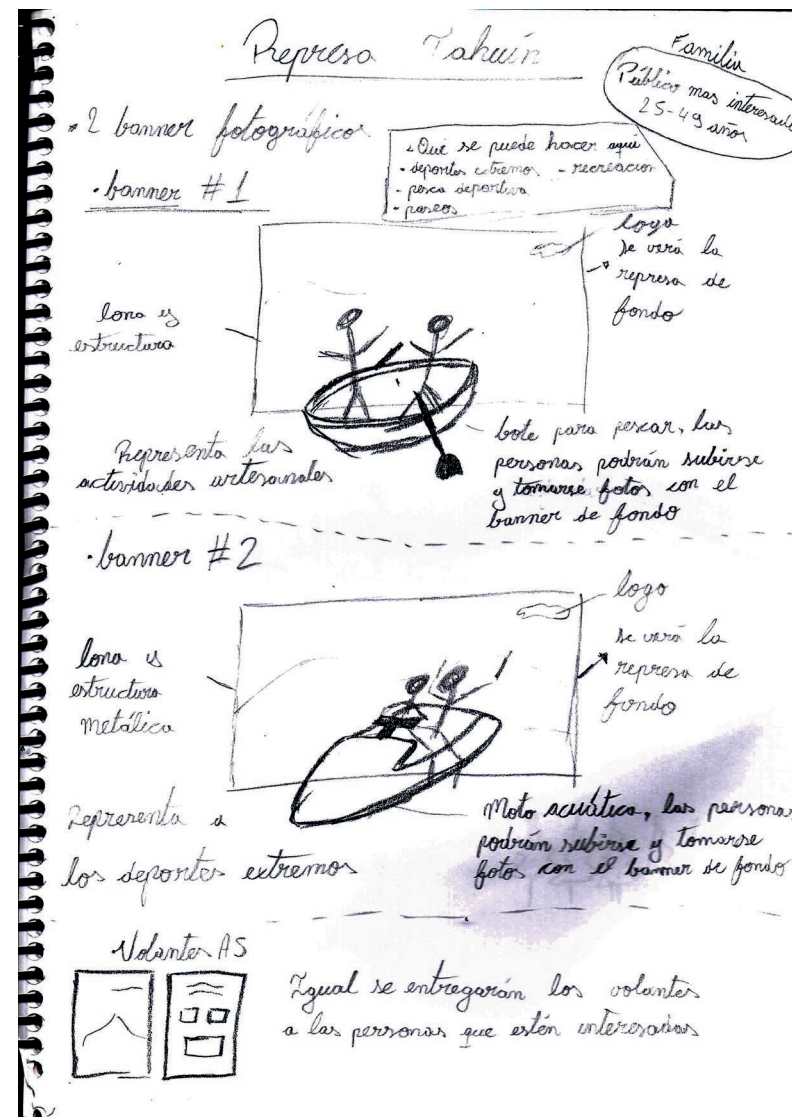 Represa Tahuín
Familia
Público mas interesado
25-49 años
* 2 banner fotográficos
¿Qué se puede hacer aquí
- deportes extremos - recreación
- pesca deportiva
- paseos
· banner #1
logo
se verá la
represa de
fondo
lona y
estructura
Representa las
actividades artesanales
bote para pescar, las
personas podrán subirse
y tomarse fotos con el
banner de fondo
· banner #2
logo
se verá la
represa de
fondo
lona y
estructura
metálica
Representa a
los deportes extremos
Moto acuática, las personas
podrán subirse y tomarse
fotos con el banner de fondo
Volantes A5
Igual se entregarán los volantes
a las personas que estén interesadas